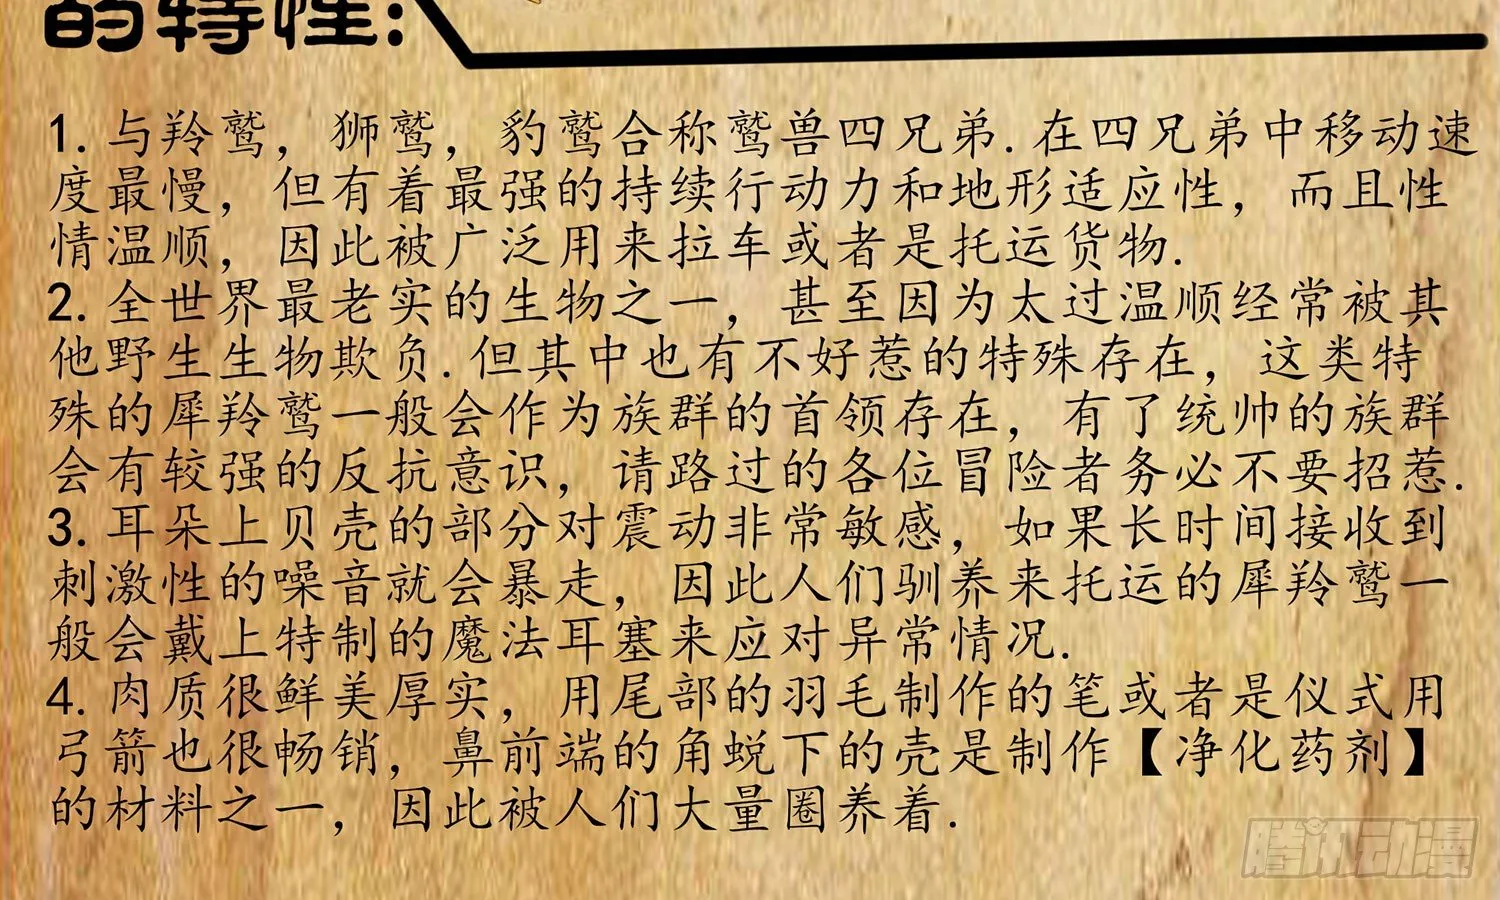 的特性:
1. 与羚鹫，狮鹫，豹鹫合称鹫兽四兄弟.在四兄弟中移动速
度最慢，但有着最强的持续行动力和地形适应性，而且性
情温顺，因此被广泛用来拉车或者是托运货物.
2. 全世界最老实的生物之一，甚至因为太过温顺经常被其
他野生生物欺负.但其中也有不好惹的特殊存在，这类特
殊的犀羚鹫一般会作为族群的首领存在，有了统帅的族群
会有较强的反抗意识，请路过的各位冒险者务必不要招惹.
3. 耳朵上贝壳的部分对震动非常敏感，如果长时间接收到
刺激性的噪音就会暴走，因此人们驯养来托运的犀羚鹫一
般会戴上特制的魔法耳塞来应对异常情况.
4. 肉质很鲜美厚实，用尾部的羽毛制作的笔或者是仪式用
弓箭也很畅销，鼻前端的角蜕下的壳是制作【净化药剂】
的材料之一，因此被人们大量圈养着.
腾讯动漫